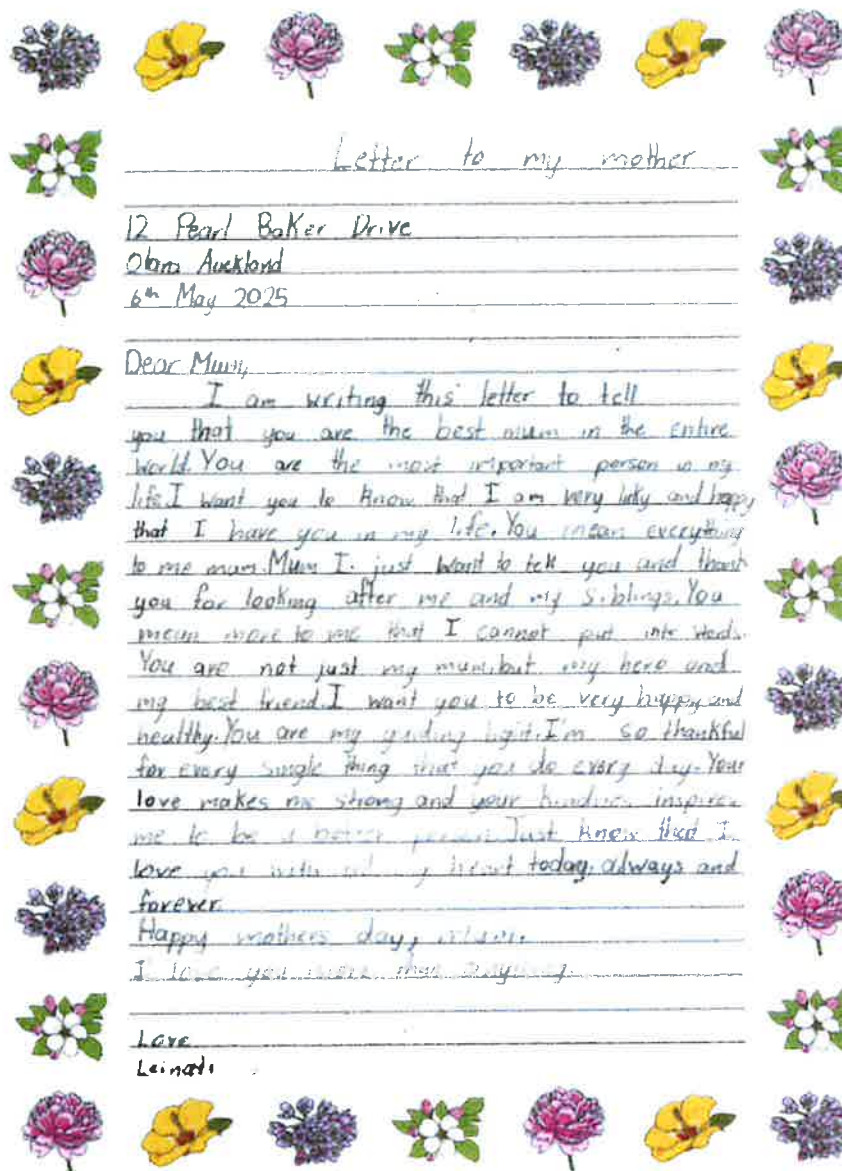 Letter to my mother
12 Pearl Baker Drive
Otara Auckland
6th May 2025
Dear Mum,
I am writing this letter to tell
you that you are the best mum in the entire
world. You are the most important person in my
life. I want you to know that I am very lucky and happy
that I have you in my life. You mean everything
to me mum. Mum I just want to tell you and thank
you for looking after me and my siblings. You
mean more to me that I cannot put into words.
You are not just my mum, but my hero and
my best friend. I want you to be very happy and
healthy. You are my guiding light. I'm so thankful
for every single thing that you do every day. Your
love makes me strong and your kindness inspires
me to be a better person. Just know that I
love you with all my heart today, always and
forever.
Happy mothers day, mum.
I love you more than anything.
Love